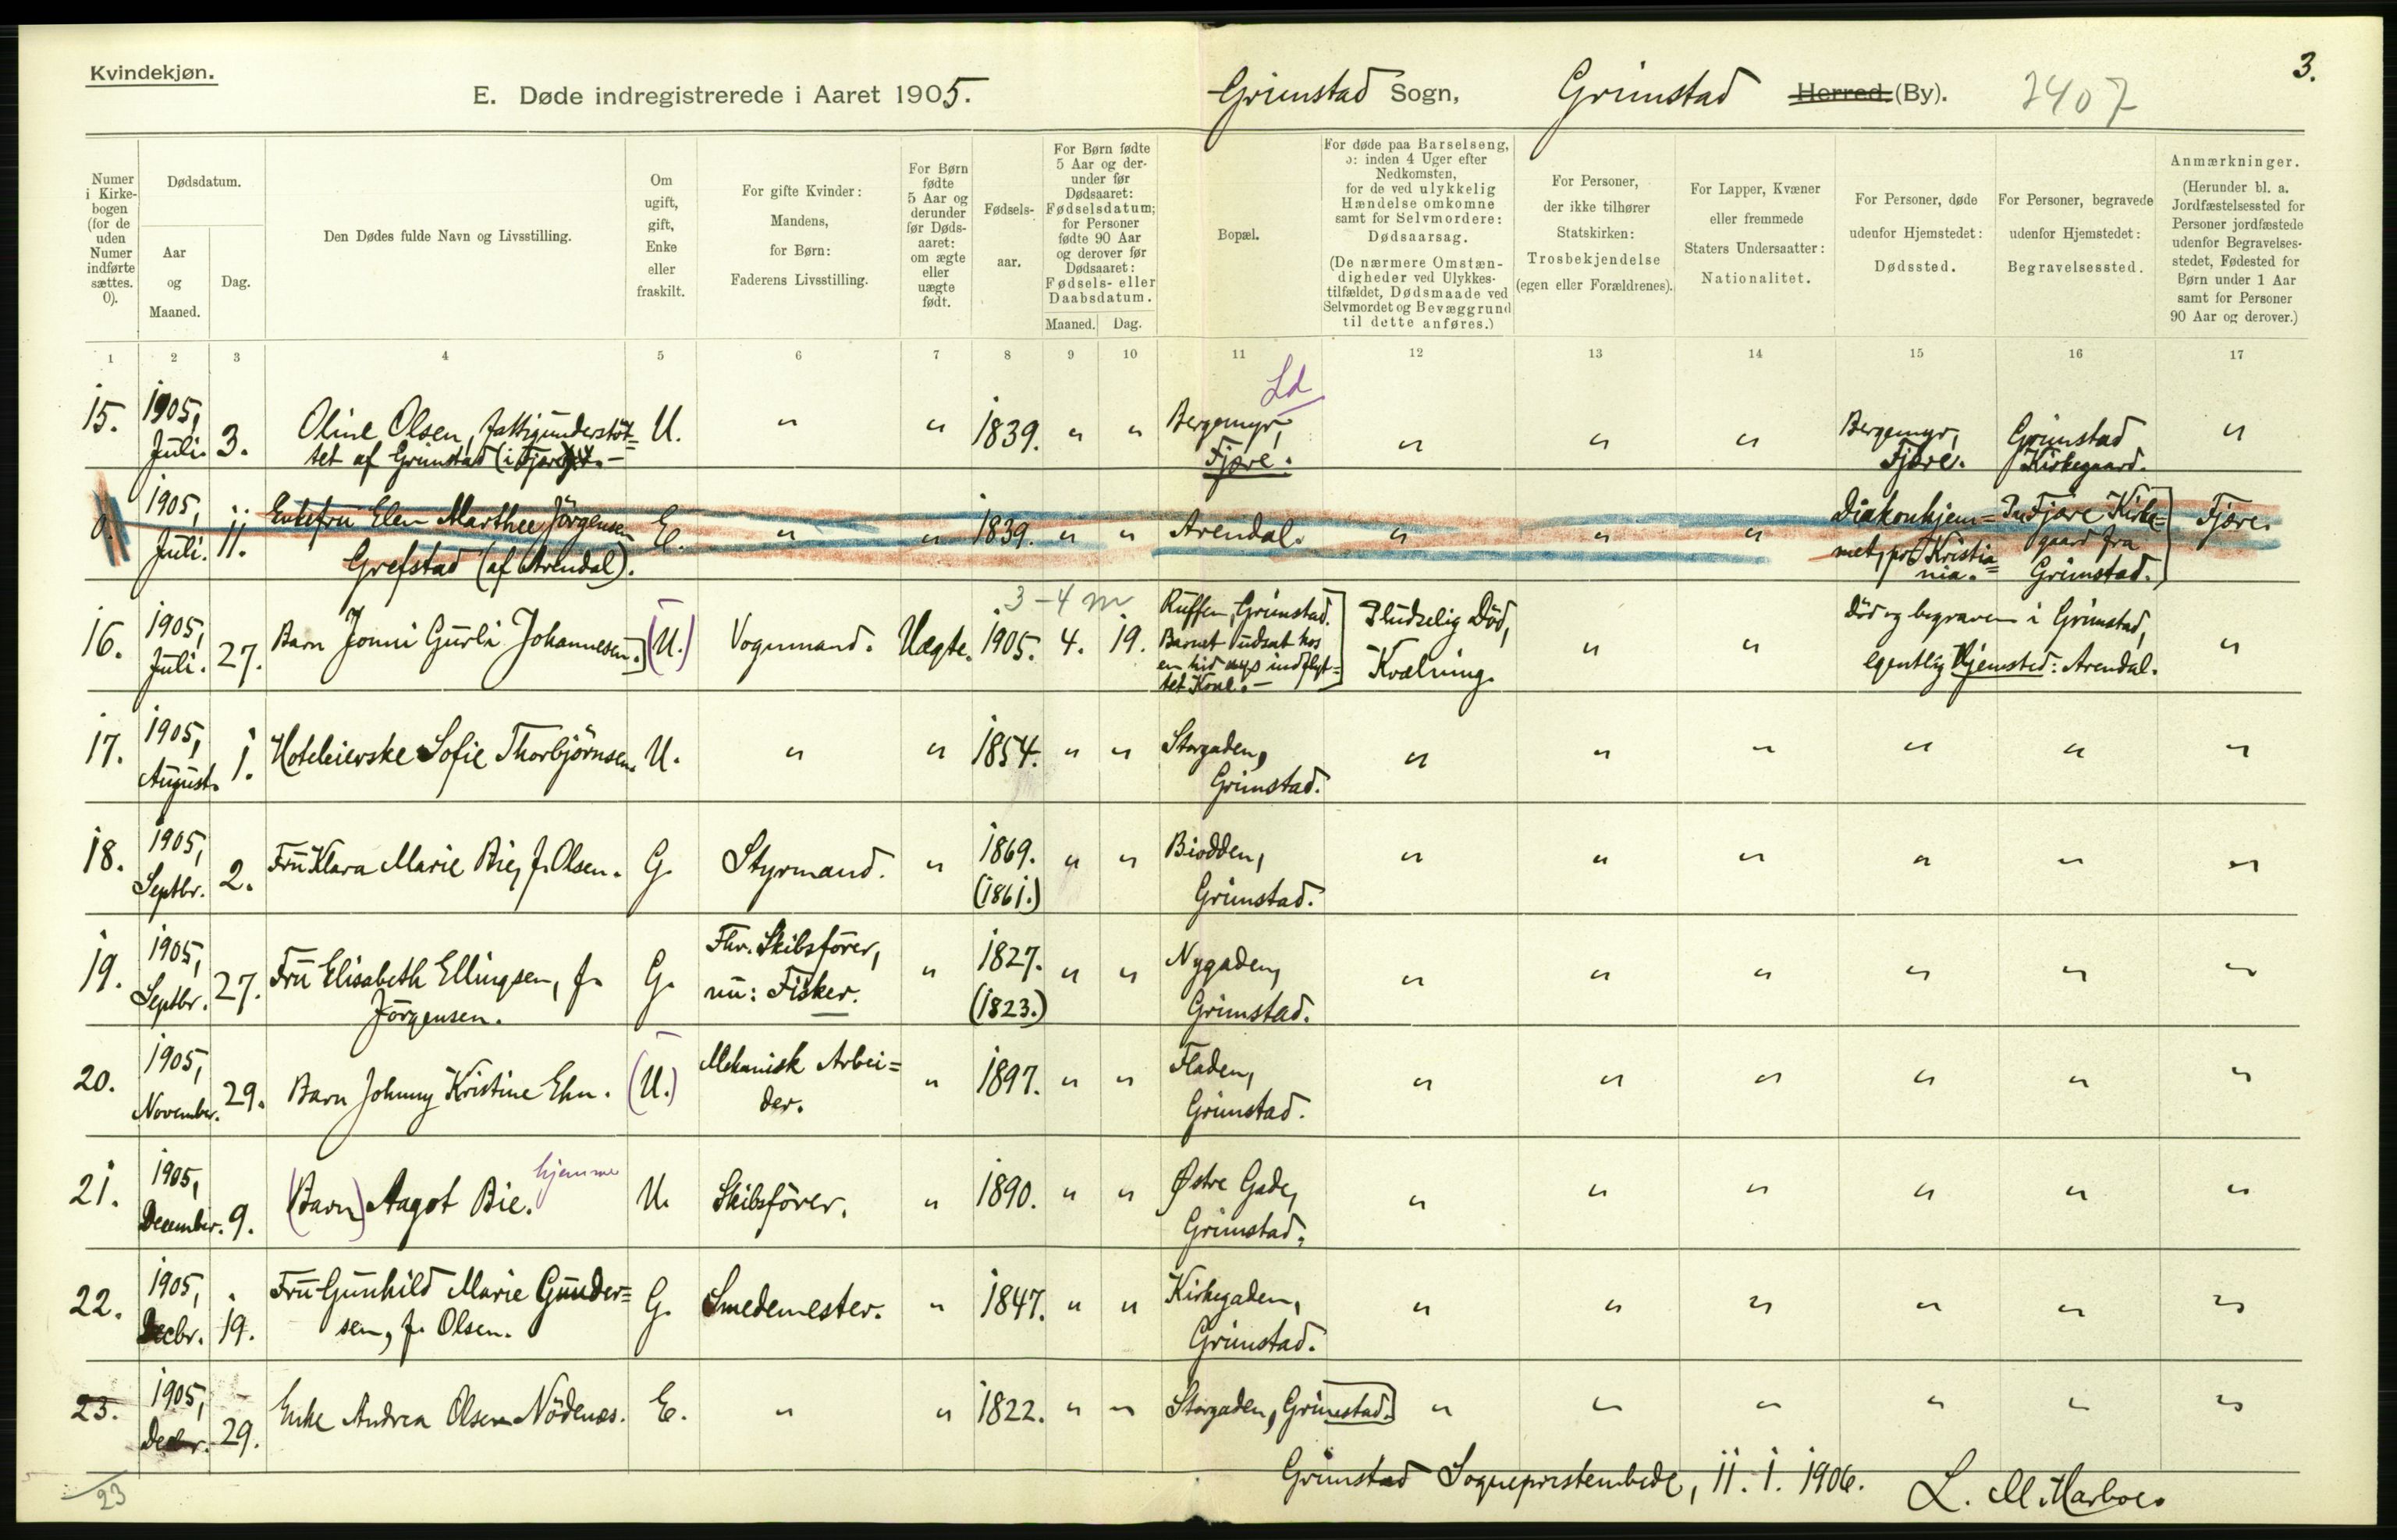 Kvindekjøn.
3.
E. Døde indregistrerede i Aaret 1905. Grimstad Sogn, Grimstad Herred. (By). 2407
Numer i Kirkebogen (for de uden Numer indførte sættes. 0).
Dødsdatum.
Aar og Maaned.
Dag.
Den Dødes fulde Navn og Livsstilling.
Om ugift, gift, Enke eller fraskilt.
For gifte Kvinder: Mandens, for Børn: Faderens Livsstilling.
For Børn fødte 5 Aar og derunder før Dødsaaret: om ægte eller uægte født.
Fødselsaar.
For Børn fødte 5 Aar og derunder før Dødsaaret: Fødselsdatum; for Personer fødte 90 Aar og derover før Dødsaaret: Fødsels- eller Daabsdatum.
Maaned. Dag.
Bopæl.
For døde paa Barselseng, ɔ: inden 4 Uger efter Nedkomsten, for de ved ulykkelig Hændelse omkomne samt for Selvmordere: Dødsaarsag. (De nærmere Omstændigheder ved Ulykkestilfældet, Dødsmaade ved Selvmordet og Bevæggrund til dette anføres.)
For Personer, der ikke tilhører Statskirken: Trosbekjendelse (egen eller Forældrenes).
For Lapper, Kvæner eller fremmede Staters Undersaatter: Nationalitet.
For Personer, døde udenfor Hjemstedet: Dødssted.
For Personer, begravede udenfor Hjemstedet: Begravelsessted.
Anmærkninger. (Herunder bl. a. Jordfæstelsessted for Personer jordfæstede udenfor Begravelsesstedet, Fødested for Børn under 1 Aar samt for Personer 90 Aar og derover.)
1 2 3 4 5 6 7 8 9 10 11 12 13 14 15 16 17
Ld
15. 1905, Juli. 3. Oline Olsen, fattigunderstøttet af Grimstad (i Fjære). U. " " 1839. " " Bergemyr, Fjære. " " " Bergemyr, Fjære. Grimstad Kirkegaard. "
0. 1905, Juli. 11. Enkefru Elen Marthee Jörgensen Grefstad (af Arendal). E. " " 1839. " " Arendal. " " " Diakonhjemmet, pr. Kristiania. Fjære Kirkegaard fra Grimstad. Fjære.
3-4 m
16. 1905, Juli. 27. Barn Jonni Gurli Johannesen. (U.) Vognmand. Uægte. 1905. 4. 19. Ruffen, Grimstad. Barnet udsat hos en hid nys indflyttet Kone. Pludselig Död, Kvælning. " " Död og begraven i Grimstad, egentlig Hjemsted: Arendal. "
17. 1905, August. 1. Hoteleierske Sofie Thorbjörnsen. U. " " 1854. " " Storgaden, Grimstad. " " " " " "
18. 1905, Septbr. 2. Fru Klara Marie Bie, f. Olsen. G. Styrmand. " 1869. (1861.) " " Biodden, Grimstad. " " " " " "
19. 1905, Septbr. 27. Fru Elisabeth Ellingsen, f. Jörgensen. G. Fhv. Skibsförer, nu: Fisker. " 1827. (1823.) " " Nygaden, Grimstad. " " " " " "
20. 1905, November. 29. Barn Johnny Kristine Ehn. (U.) Mekanisk Arbeider. " 1897. " " Fladen, Grimstad. " " " " " "
21. 1905, December. 9. (Barn) Aagot Bie. hjemme U. Skibsförer. " 1890. " " Østre Gade, Grimstad. " " " " " "
22. 1905, Decbr. 19. Fru Gunhild Marie Gundersen, f. Olsen. G. Smedemester. " 1847. " " Kirkegaden, Grimstad. " " " " " "
23. 1905, Decbr. 29. Enke Andrea Olsen Nödenæs. E. " " 1822. " " Storgaden, Grimstad. " " " " " "
23
Grimstad Sogneprestembede, 11. 1. 1906. L. M.